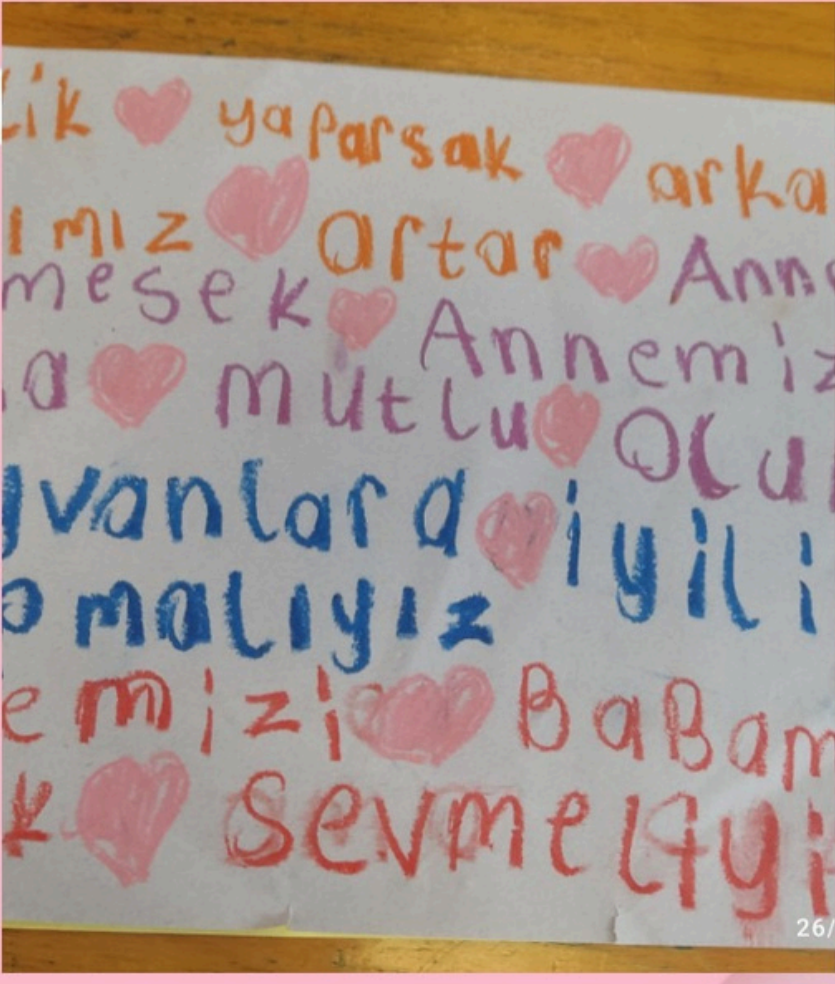 lik yaparsak arka
ımız artar Anne
mesek Annemiz
a mutlu Olur
yvanlara iyili
pmalıyız
emizi BaBam
k sevmeliyi
26/